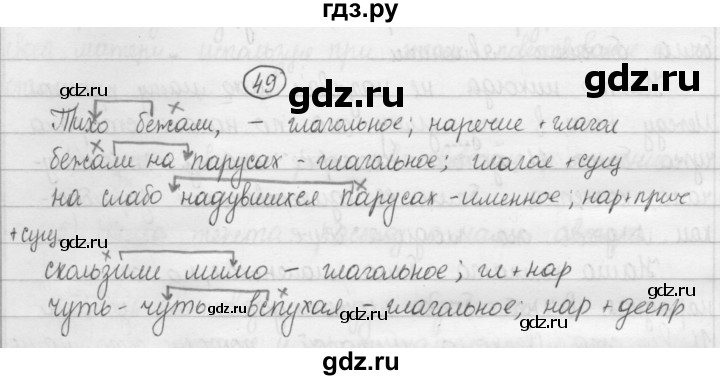 гдз.ру
49
gdz.ru gdz.ru gdz.ru
Тихо бежали, - глагольное; наречие + глагол
gdz.ru gdz.ru
бежали на парусах - глагольное; глагол + сущ
на слабо надувшихся парусах - именное; нар + прич
+ сущ
gdz.ru gdz.ru gdz.ru
скользили мимо - глагольное; гл + нар
чуть - чуть вспухая - глагольное; нар + деепр
gdz.ru gdz.ru gdz.ru gdz.ru
gdz.ru